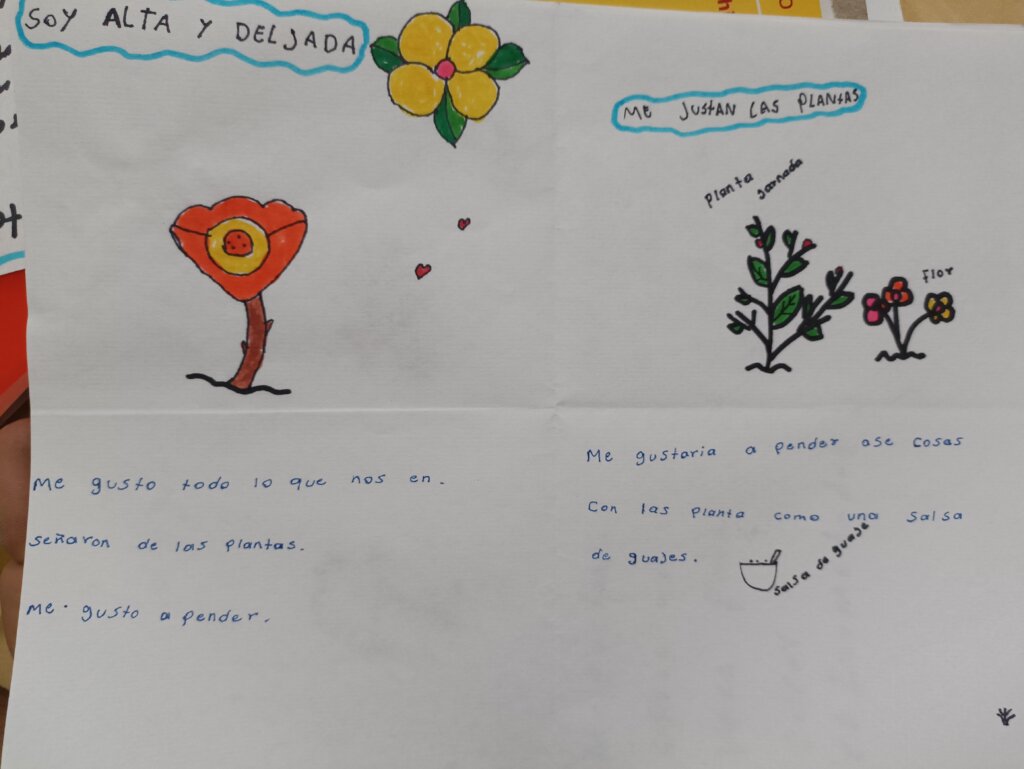 SOY ALTA Y DELJADA
ME JUSTAN LAS PLANTAS
Planta
Jornada
Flor
Me gusto todo lo que nos en.
señaron de las plantas.
Me. gusto a pender.
Me gustaria a pender ase cosas
Con las planta como una salsa
de guajes.
salsa de guaje